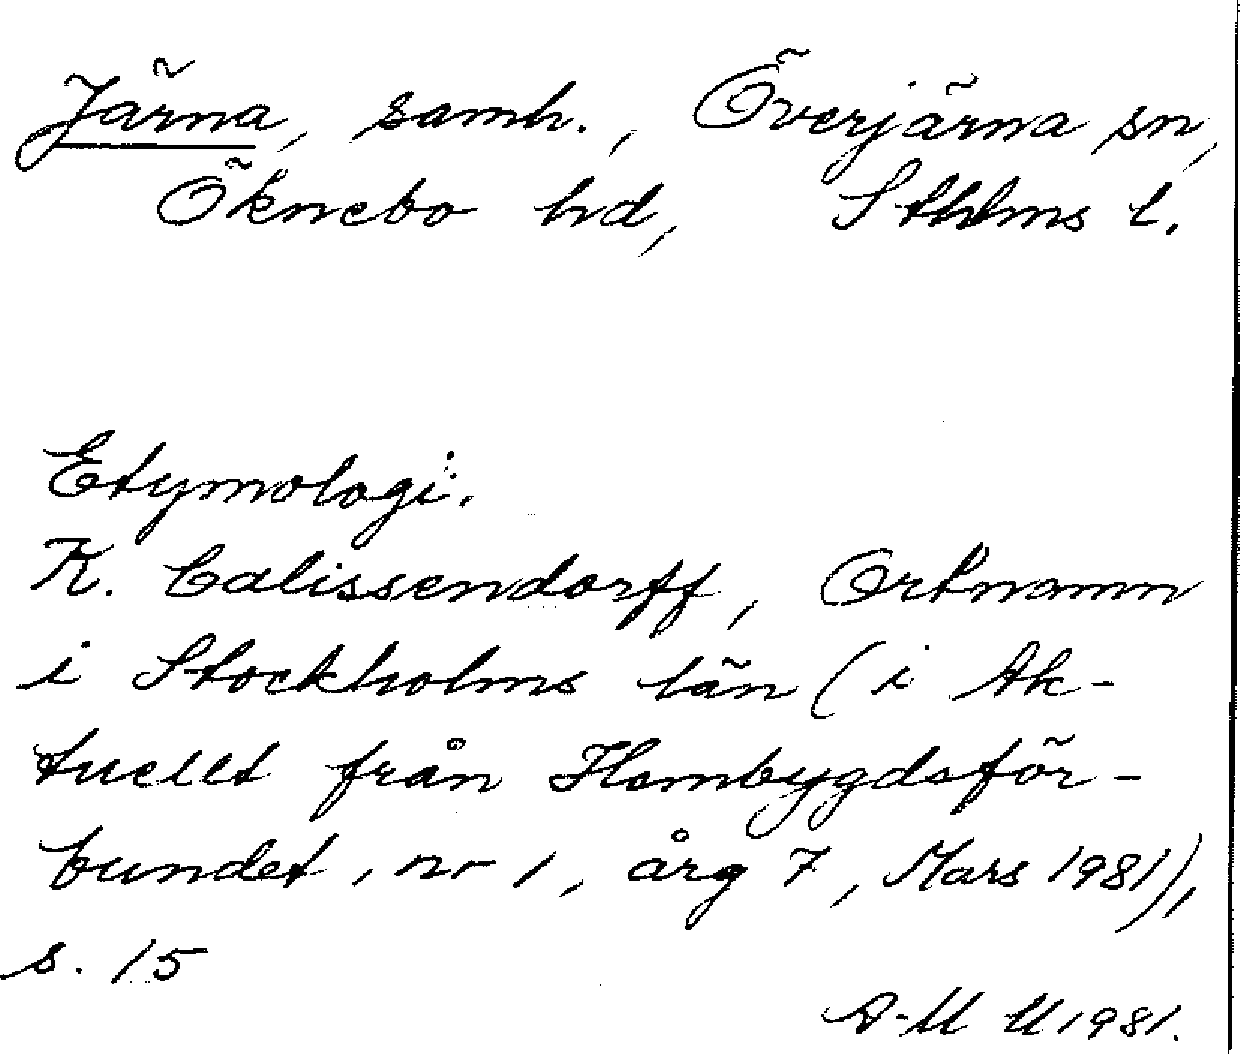 Järna, samh., Överjärna sn,
Öknebo hd, Sthlms l.
Etymologi.
K. Calissendorff, Ortnamn
i Stockholms län (i Ak-
tuellt från Hembygdsför-
bundet, nr 1, årg 7, Mars 1981),
s. 15
A-M U 1981.